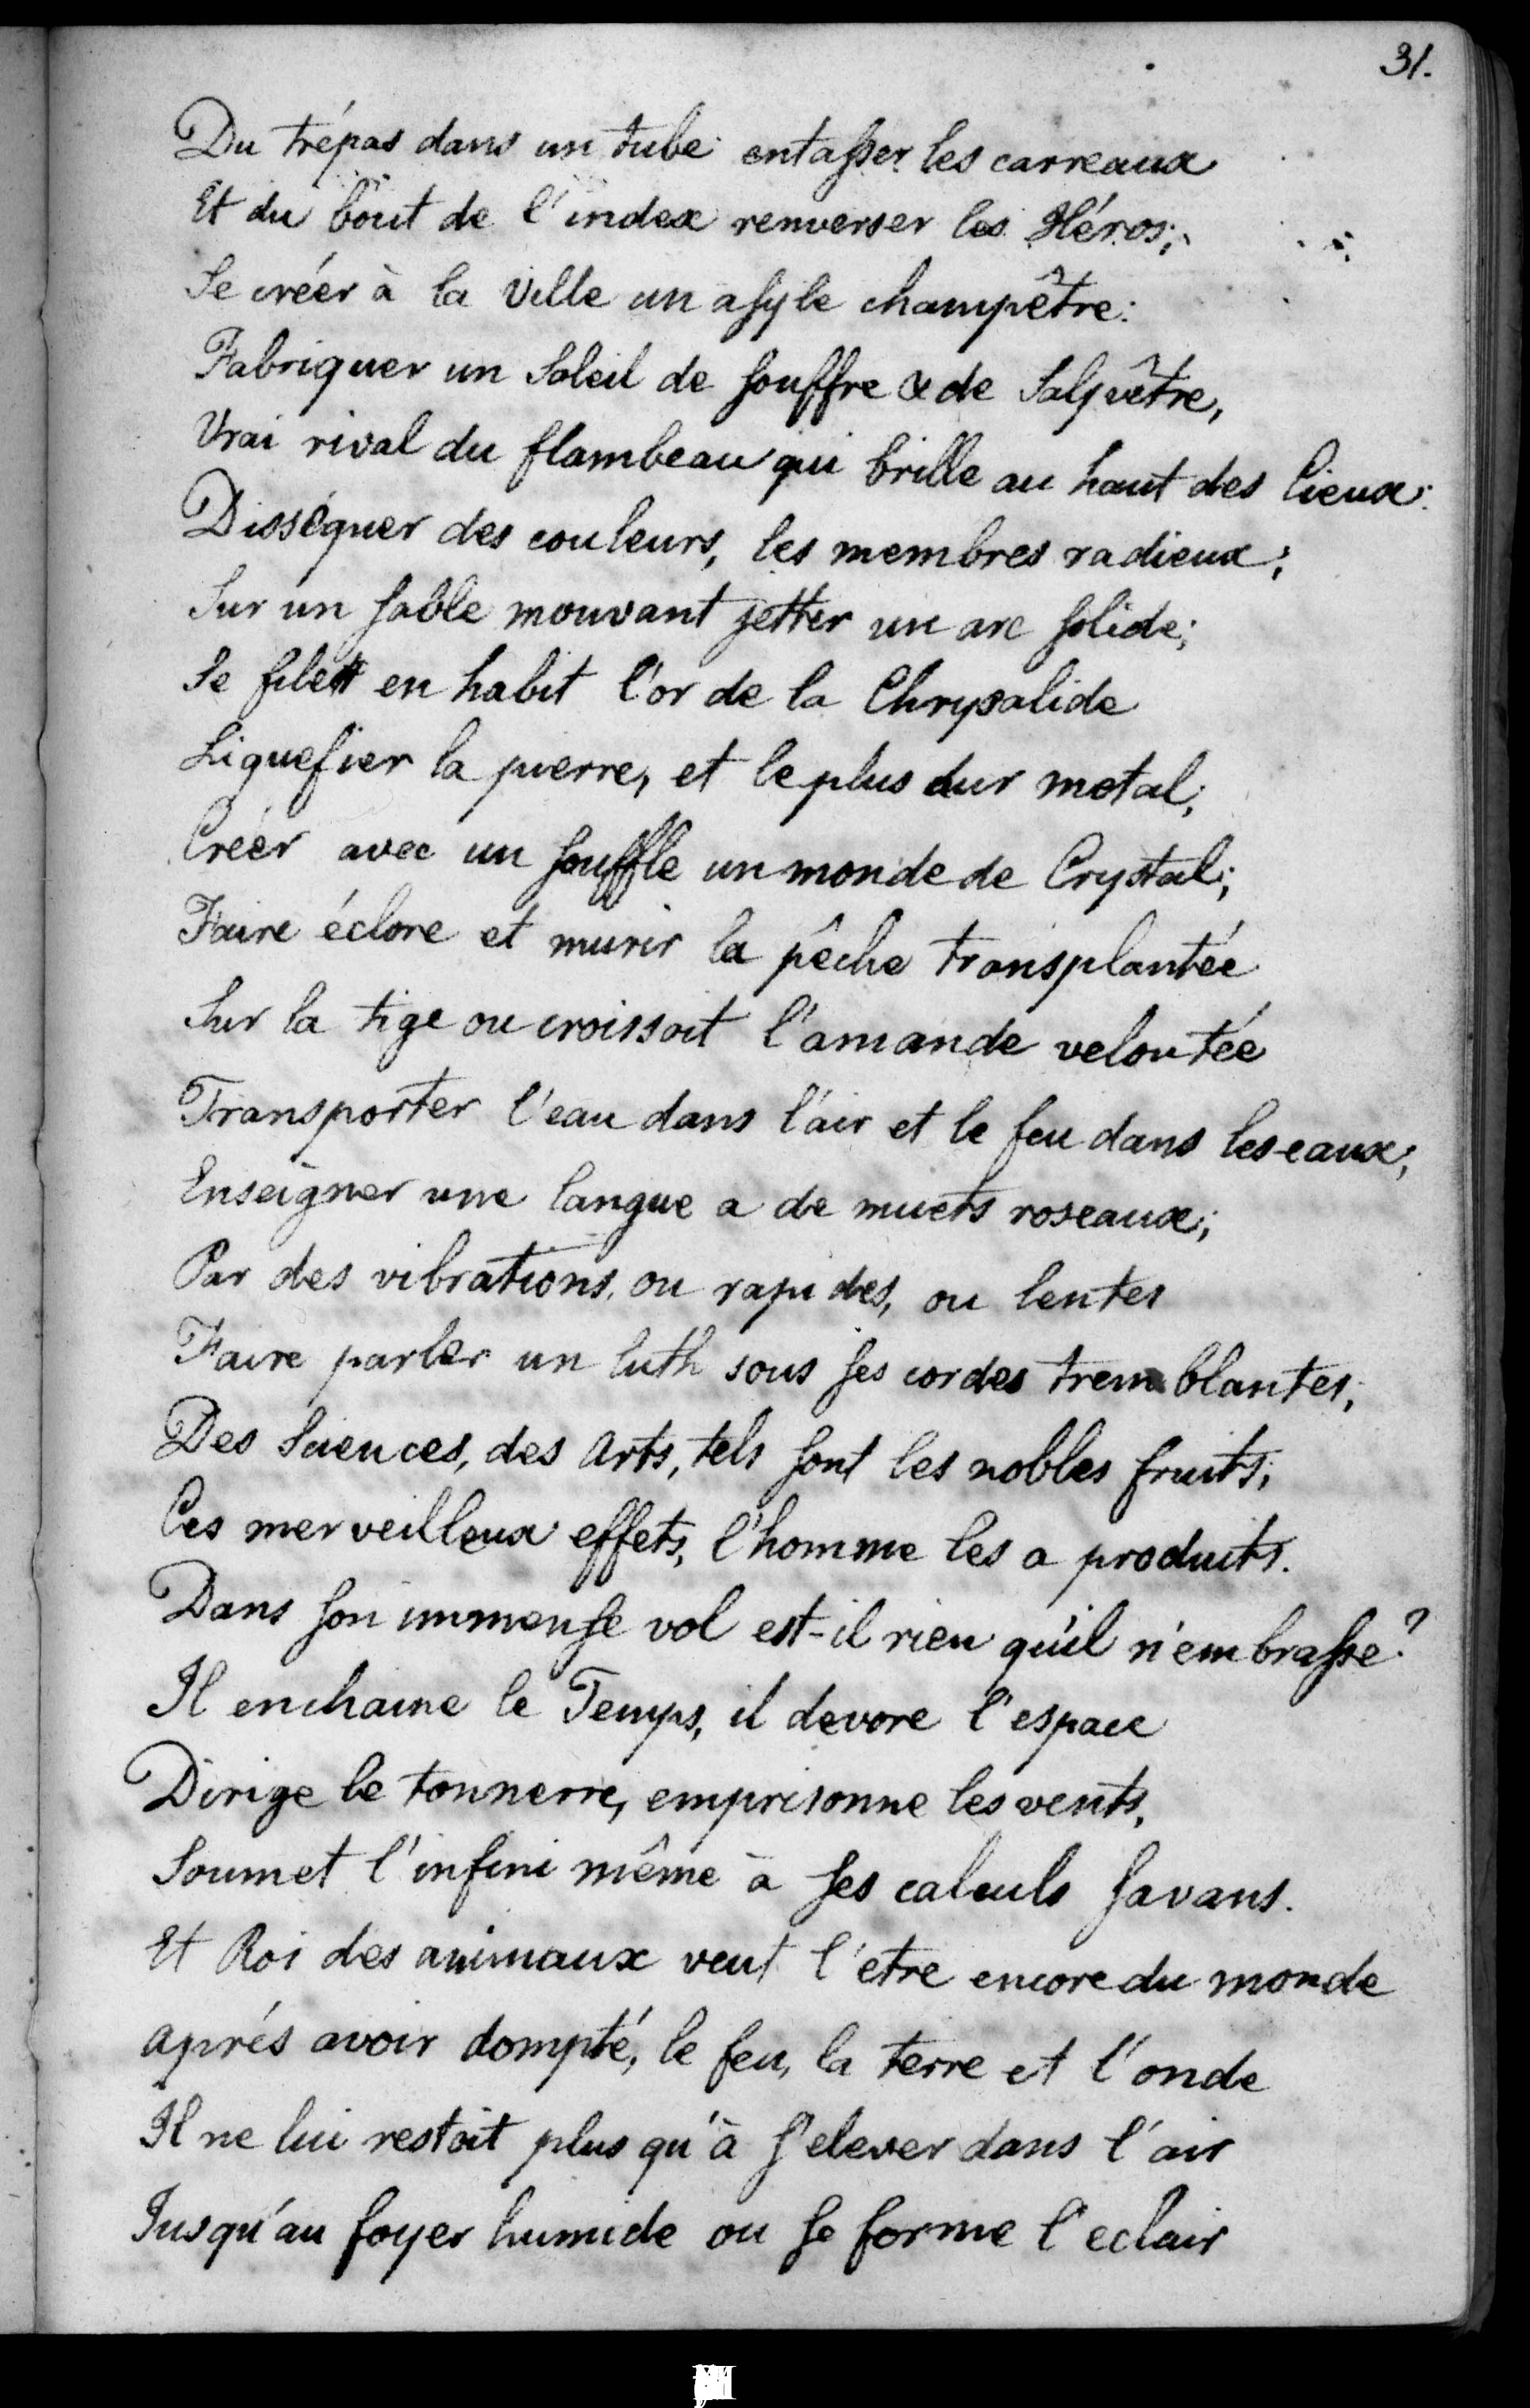 31.
Du trépas dans un tube entasser les carreaux
Et du bout de l'index renverser les Héros;
Se créer à la Ville un asyle champêtre:
Fabriquer un Soleil de souffre & de Salpêtre,
Vrai rival du flambeau qui brille au haut des Cieux:
Disséquer des couleurs, les membres radieux;
Sur un sable mouvant jetter un arc solide;
Se filer en habit l'or de la Chrysalide
Liquefier la pierre, et le plus dur metal;
Créer avec un souffle un monde de Crystal;
Faire éclore et murir la pêche transplantée
Sur la tige ou croissoit l'amande veloutée
Transporter l'eau dans l'air et le feu dans les eaux;
Enseigner une langue a de muets roseaux;
Par des vibrations, ou rapides, ou lentes
Faire parler un luth sous ses cordes tremblantes,
Des Sciences, des Arts, tels sont les nobles fruits;
Ces merveilleux effets, l'homme les a produits.
Dans son immense vol est-il rien qu'il n'embrasse?
Il enchaine le Temps, il devore l'espace
Dirige le tonnerre, emprisonne les vents,
Soumet l'infini même à ses calculs savans.
Et Roi des animaux veut l'etre encore du monde
après avoir dompté, le feu, la terre et l'onde
Il ne lui restoit plus qu'à s'elever dans l'air
Jusqu'au foyer humide ou se forme l'eclair